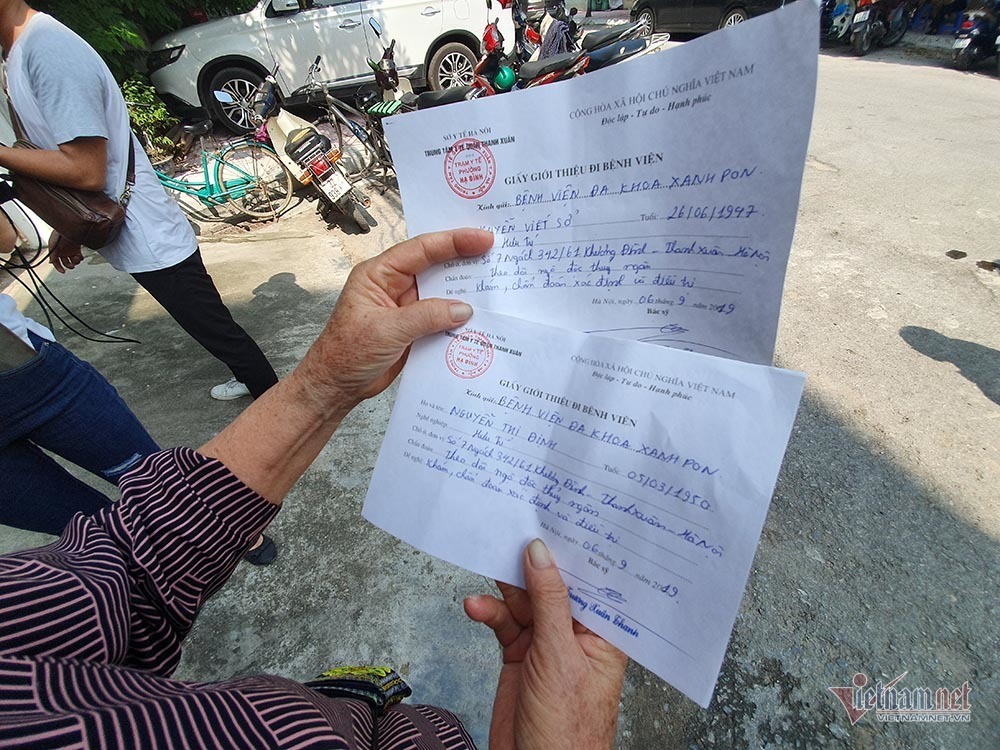 SỞ Y TẾ HÀ NỘI
TRUNG TÂM Y TẾ QUẬN THANH XUÂN
CỘNG HÒA XÃ HỘI CHỦ NGHĨA VIỆT NAM
Độc lập - Tự do - Hạnh phúc
TRẠM Y TẾ
PHƯỜNG
HẠ ĐÌNH
GIẤY GIỚI THIỆU ĐI BỆNH VIỆN
Kính gửi: BỆNH VIỆN ĐA KHOA XANH PON.
NGUYỄN VIẾT SỞ Tuổi: 26/06/1947.
Hưu trí
Chỗ ở, đơn vị: Số 7 Ngách 342/61 Khương Đình - Thanh Xuân - Hà Nội
Chẩn đoán: Theo dõi ngộ độc thuỷ ngân
Đề nghị: Khám, chẩn đoán xác định và điều trị
Hà Nội, ngày 06 tháng 9 năm 2019
Bác sỹ
SỞ Y TẾ HÀ NỘI
TRUNG TÂM Y TẾ QUẬN THANH XUÂN
CỘNG HÒA XÃ HỘI CHỦ NGHĨA VIỆT NAM
Độc lập - Tự do - Hạnh phúc
TRẠM Y TẾ
PHƯỜNG
HẠ ĐÌNH
GIẤY GIỚI THIỆU ĐI BỆNH VIỆN
Kính gửi: BỆNH VIỆN ĐA KHOA XANH PON.
Họ và tên: NGUYỄN THỊ ĐỊNH Tuổi: 05/03/1950
Nghề nghiệp: Hưu trí
Chỗ ở, đơn vị: Số 7 Ngách 342/61 Khương Đình - Thanh Xuân - Hà Nội
Chẩn đoán: Theo dõi ngộ độc thuỷ ngân
Đề nghị: Khám, chẩn đoán xác định và điều trị
Hà Nội, ngày 06 tháng 9 năm 2019
Bác sỹ
Trương Xuân Thanh
Vietnam.net
VIETNAMNET.VN